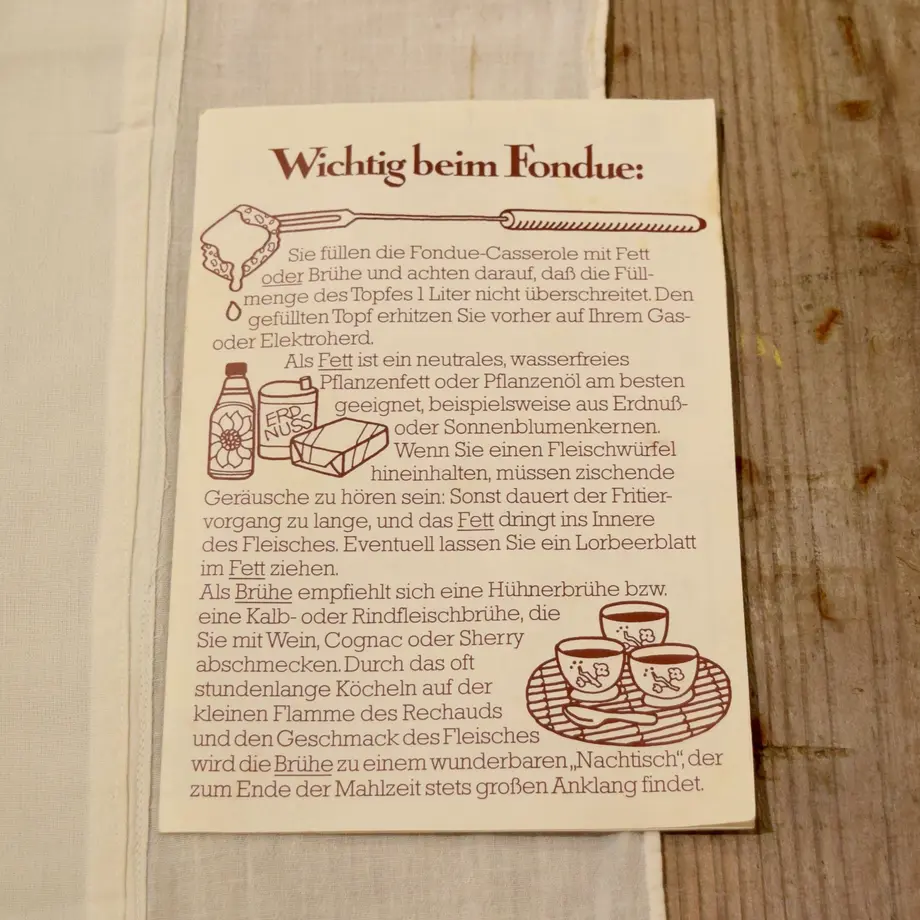 Wichtig beim Fondue:
Sie füllen die Fondue-Casserole mit Fett
oder Brühe und achten darauf, daß die Füll-
menge des Topfes 1 Liter nicht überschreitet. Den
gefüllten Topf erhitzen Sie vorher auf Ihrem Gas-
oder Elektroherd.
Als Fett ist ein neutrales, wasserfreies
Pflanzenfett oder Pflanzenöl am besten
geeignet, beispielsweise aus Erdnuß-
oder Sonnenblumenkernen.
ERD
NUSS
Wenn Sie einen Fleischwürfel
hineinhalten, müssen zischende
Geräusche zu hören sein: Sonst dauert der Fritier-
vorgang zu lange, und das Fett dringt ins Innere
des Fleisches. Eventuell lassen Sie ein Lorbeerblatt
im Fett ziehen.
Als Brühe empfiehlt sich eine Hühnerbrühe bzw.
eine Kalb- oder Rindfleischbrühe, die
Sie mit Wein, Cognac oder Sherry
abschmecken. Durch das oft
stundenlange Köcheln auf der
kleinen Flamme des Rechauds
und den Geschmack des Fleisches
wird die Brühe zu einem wunderbaren „Nachtisch“, der
zum Ende der Mahlzeit stets großen Anklang findet.